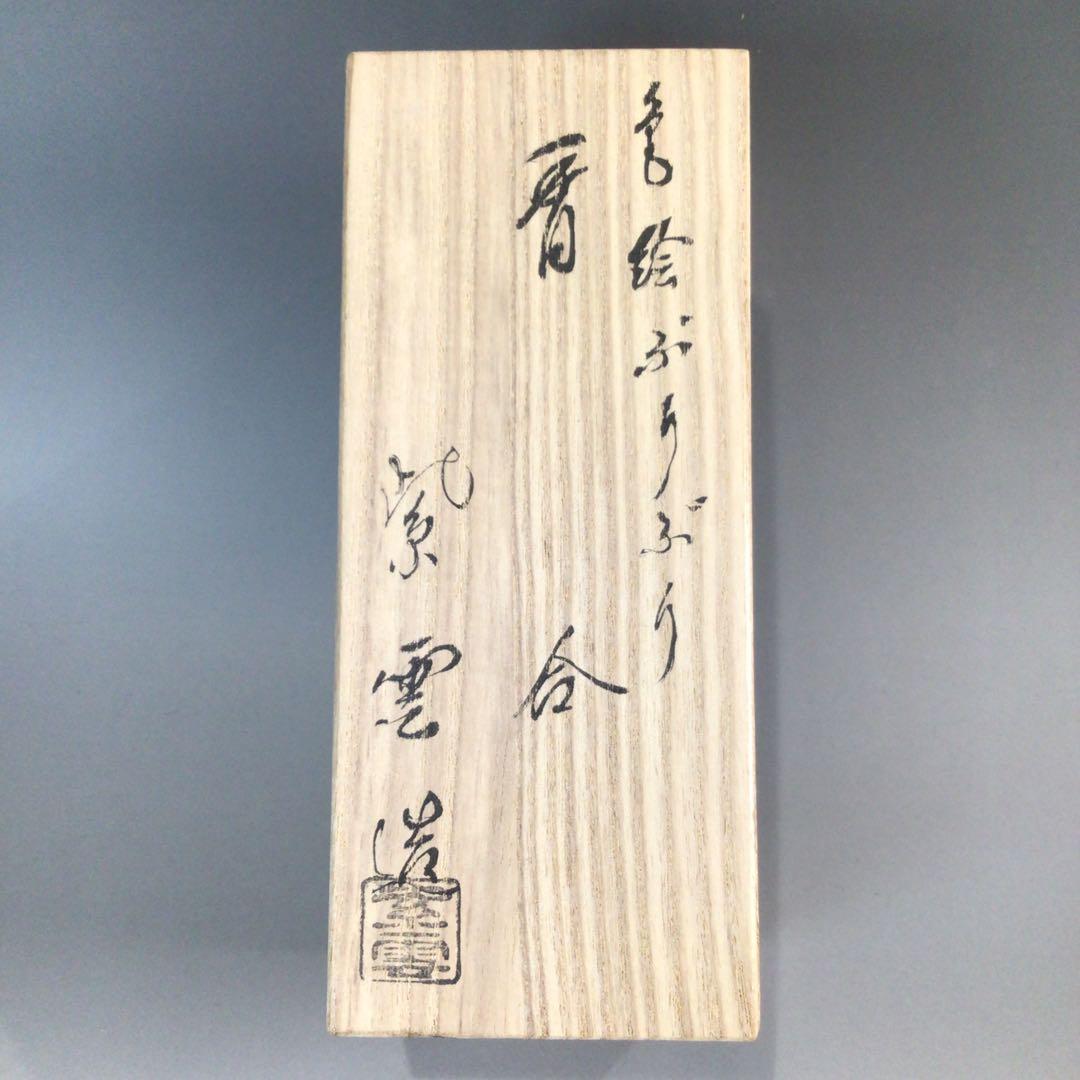 色絵ぶりぶり
香合
紫雲造
紫雲